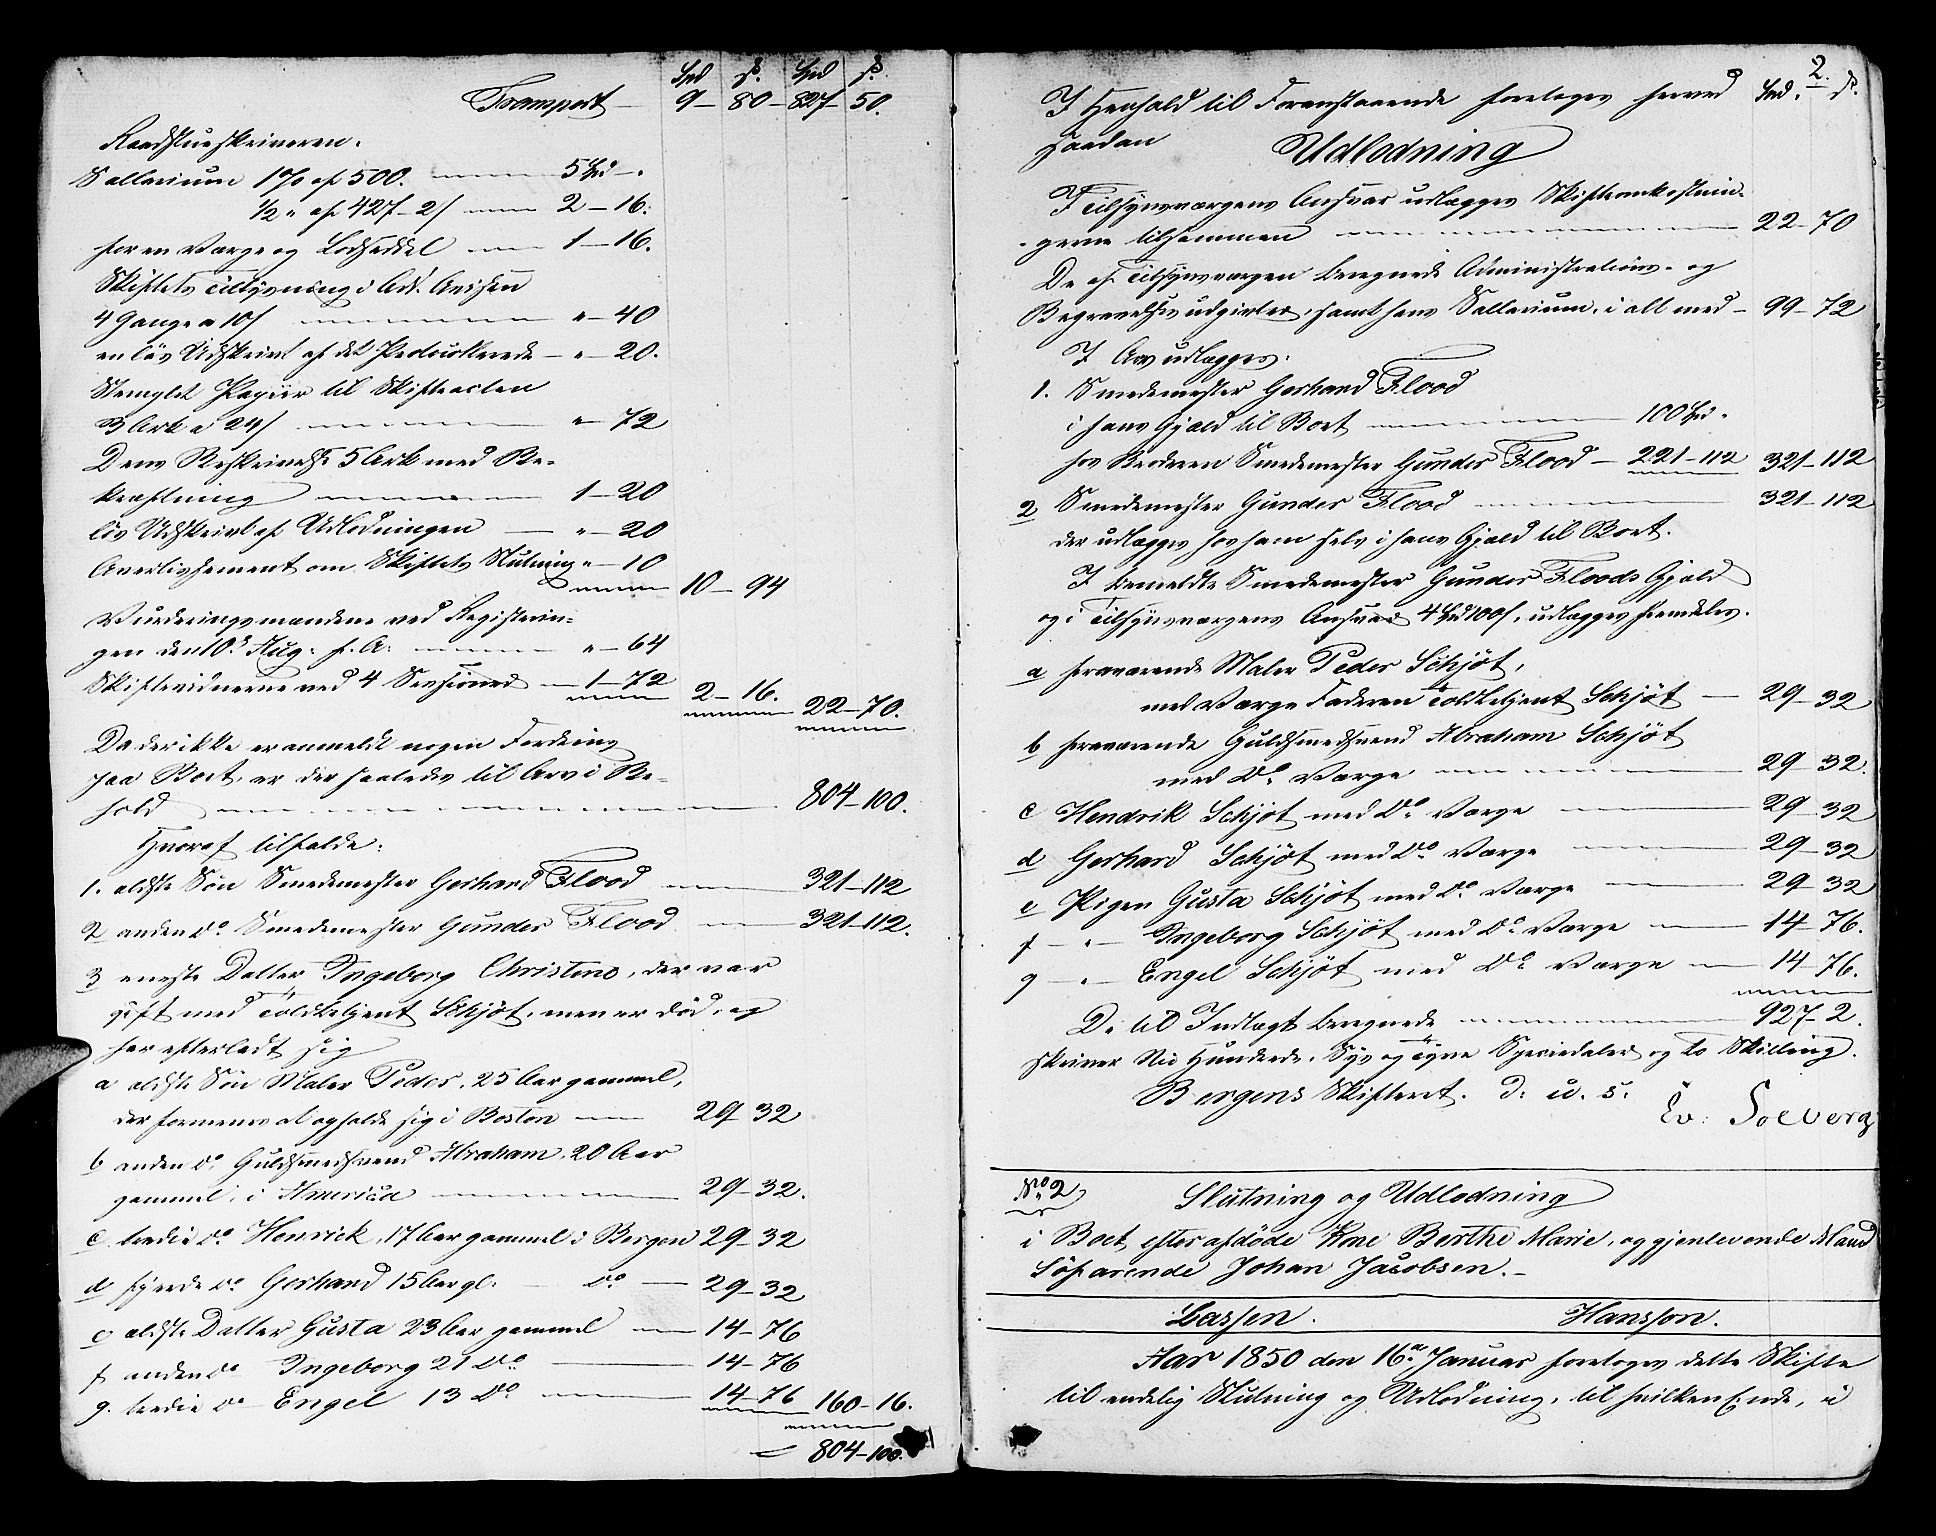 Spd ß. Spd ß.
Transport — 9 — 80 — 827 — 50.
Raadstueskriveren.
Sallarium 1% af 500. — 5 Spd — "
½ " af 427 — 2 ß — 2 — 16.
for en Værge og Lodseddel — 1 — 16.
Skiftets Tillysning i Ad. Avisen
4 Gange a 10 ß — " — 40
en løs Udskrivt af det Protocollerede — " — 20.
Stemplet Papiir til Skifteacten
3 Ark a 24 ß — " — 72
Dens Reskrivelse 5 Ark med Be-
kræftning — 1 — 20
løs Udskrivt af Udlodningen — " — 20
Avertissement om Skiftets Slutning " — 10
10 — 94
Vurderingsmændene ved Registerin-
gen den 10d Aug: f. A: — " — 64
Skiftevidnerne ved 4 Sessioner — 1 — 72
2 — 16. 22 — 70.
Da der ikke er anmeldt nogen Fordring
paa Boet, er der saaledes til Arv i Be-
hold — 804 — 100.
Hvoraf tilfalde:
1. ældste Søn Smedemester Gerhard Flood — 321 — 112
2 anden do. Smedemester Gunder Flood — 321 — 112.
3 eneste Datter Ingeborg Christine, der var
gift med Toldbetjent Schjöt, men er död, og
har efterladt sig
a ældste Søn Maler Peder, 25 Aar gammel,
der formenes at opholde sig i Boston — 29 — 32
b anden do. Guldsmedsvend Abraham, 20 Aar
gammel, i America — 29 — 32.
c. tredie do. Henrick, 17 Aar gammel i Bergen 29 — 32
d fjerde do. Gerhard 15 Aar gl: — do — 29 — 32
e ældste Datter Gusta 23 Aar gammel — 14 — 76
f anden do Ingeborg 21 do — 14 — 76
g. tredie do Engel 13 do — 14 — 76 160 — 16.
= 804 — 100.
2.
I Henhold til Foranstaaende foretoges herved Spd. ß.
saadan Udlodning
I Tilsynsværgens Ansvar udlægges Skifteomkostnin-
gerne tilsammen — 22 — 70
De af Tilsynsværgen beregnede Administrations- og
Begravelsesudgivter, samt hans Sallarium, i alt med — 99 — 72
I Arv udlægges:
1. Smedemester Gerhard Flood
i hans Gjæld til Boet — 100 Spd. "
hos Broderen Smedemester Gunder Flood — 221 — 112 321 — 112
2 Smedemester Gunder Flood — 321 — 112
der udlægges hos ham selv i hans Gjæld til Boet.
I bemeldte Smedemester Gunder Floods Gjæld
og i Tilsynsværgens Ansvar 4 Spd 100 ß, udlægges fremdeles.
a fraværende Maler Peder Schjöt,
med Værge Faderen Toldbetjent Schjöt — 29 — 32
b fraværende Guldsmedsvend Abraham Schjöt
med do. Værge — 29 — 32.
c Hendrik Schjöt med do. Værge — 29 — 32
d Gerhard Schjöt med do. Værge — 29 — 32
e Pigen Gusta Schjöt med do Værge — 29 — 32
f — " — Ingeborg Schjöt med do. Værge — 14 — 76.
g — " — Engel Schjöt med do. Værge — 14 — 76.
De til Indlagt beregnede — 927 — 2.
skriver Ni Hundrede, Syv og tyve Speciedaler og to Skilling.
Bergens Skifteret. D. u. s. Ev: Solberg
No 2, Slutning og Udlodning
i Boet efter afdöde Kone Berthe Marie, og gjenlevende Mand
Söfarende Johan Jacobsen. —
Lassen. Hansson.
Aar 1850 den 16de Januar foretoges dette Skifte
til endelig Slutning og Udlodning, til hvilken Ende, i